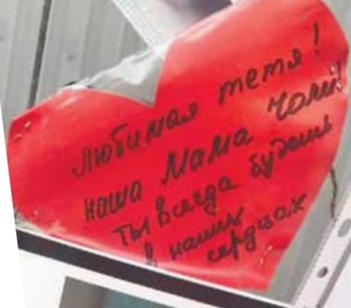 Любимая тетя!
наша Мама Чоли!
Ты всегда будешь
в наших
сердцах